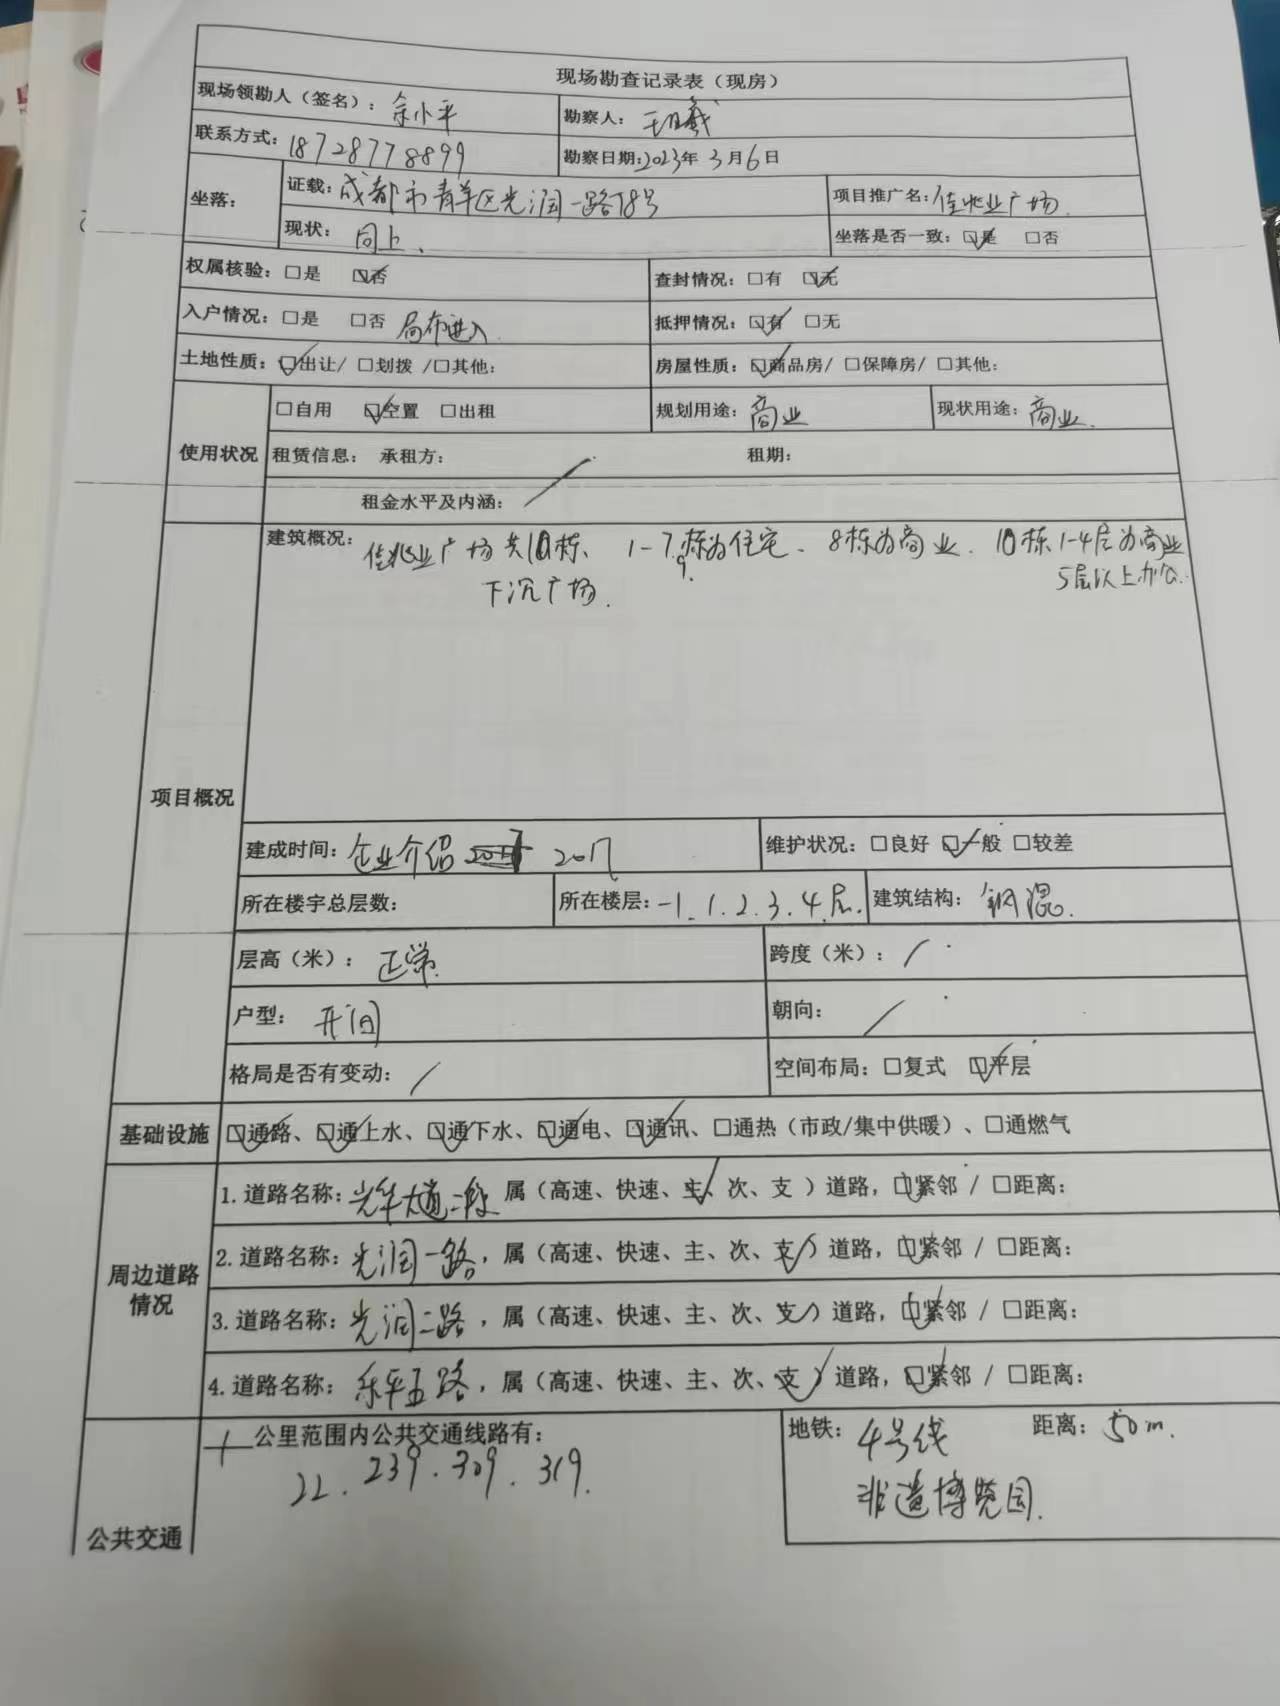 现场勘查记录表（现房）
现场领勘人（签名）：余小平 勘察人：
联系方式：18728778899 勘察日期：2023年3月6日
坐落： 证载：成都市青羊区光润一路18号 项目推广名：佳兆业广场
现状：同上、 坐落是否一致：☑是 □否
权属核验：□是 ☑否 查封情况：□有 ☑无
入户情况：□是 □否 局部进入 抵押情况：☑有 □无
土地性质：☑出让/ □划拨 /□其他： 房屋性质：☑商品房/ □保障房/ □其他：
使用状况 □自用 ☑空置 □出租 规划用途：商业 现状用途：商业.
租赁信息： 承租方： 租期：
租金水平及内涵： /
项目概况 建筑概况：佳兆业广场共10栋、1-7.9.栋为住宅、8栋为商业、10栋1-4层为商业
5层以上办公.
下沉广场.
建成时间：企业介绍 2017 维护状况：□良好 ☑一般 □较差
所在楼宇总层数： 所在楼层：-1.1.2.3.4层. 建筑结构：钢混.
层高（米）：正常 跨度（米）：/
户型：开间 朝向：/
格局是否有变动：/ 空间布局：□复式 ☑平层
基础设施 ☑通路、☑通上水、☑通下水、☑通电、☑通讯、□通热（市政/集中供暖）、□通燃气
周边道路情况 1. 道路名称：光华大道二段 属（高速、快速、主✓、次、支 ）道路，☑紧邻 / □距离：
2. 道路名称：光润一路，属（高速、快速、主、次、支✓）道路，☑紧邻 / □距离：
3. 道路名称：光润二路，属（高速、快速、主、次、支✓）道路，☑紧邻 / □距离：
4. 道路名称：乐平五路，属（高速、快速、主、次、支✓）道路，☑紧邻 / □距离：
公共交通 一公里范围内公共交通线路有： 地铁：4号线 距离：50m.
22.239.309.319. 非遗博览园.